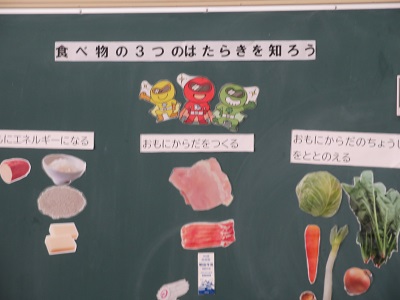 食べ物の３つのはたらきを知ろう
もにエネルギーになる
おもにからだをつくる
おもにからだのちょうし
をととのえる